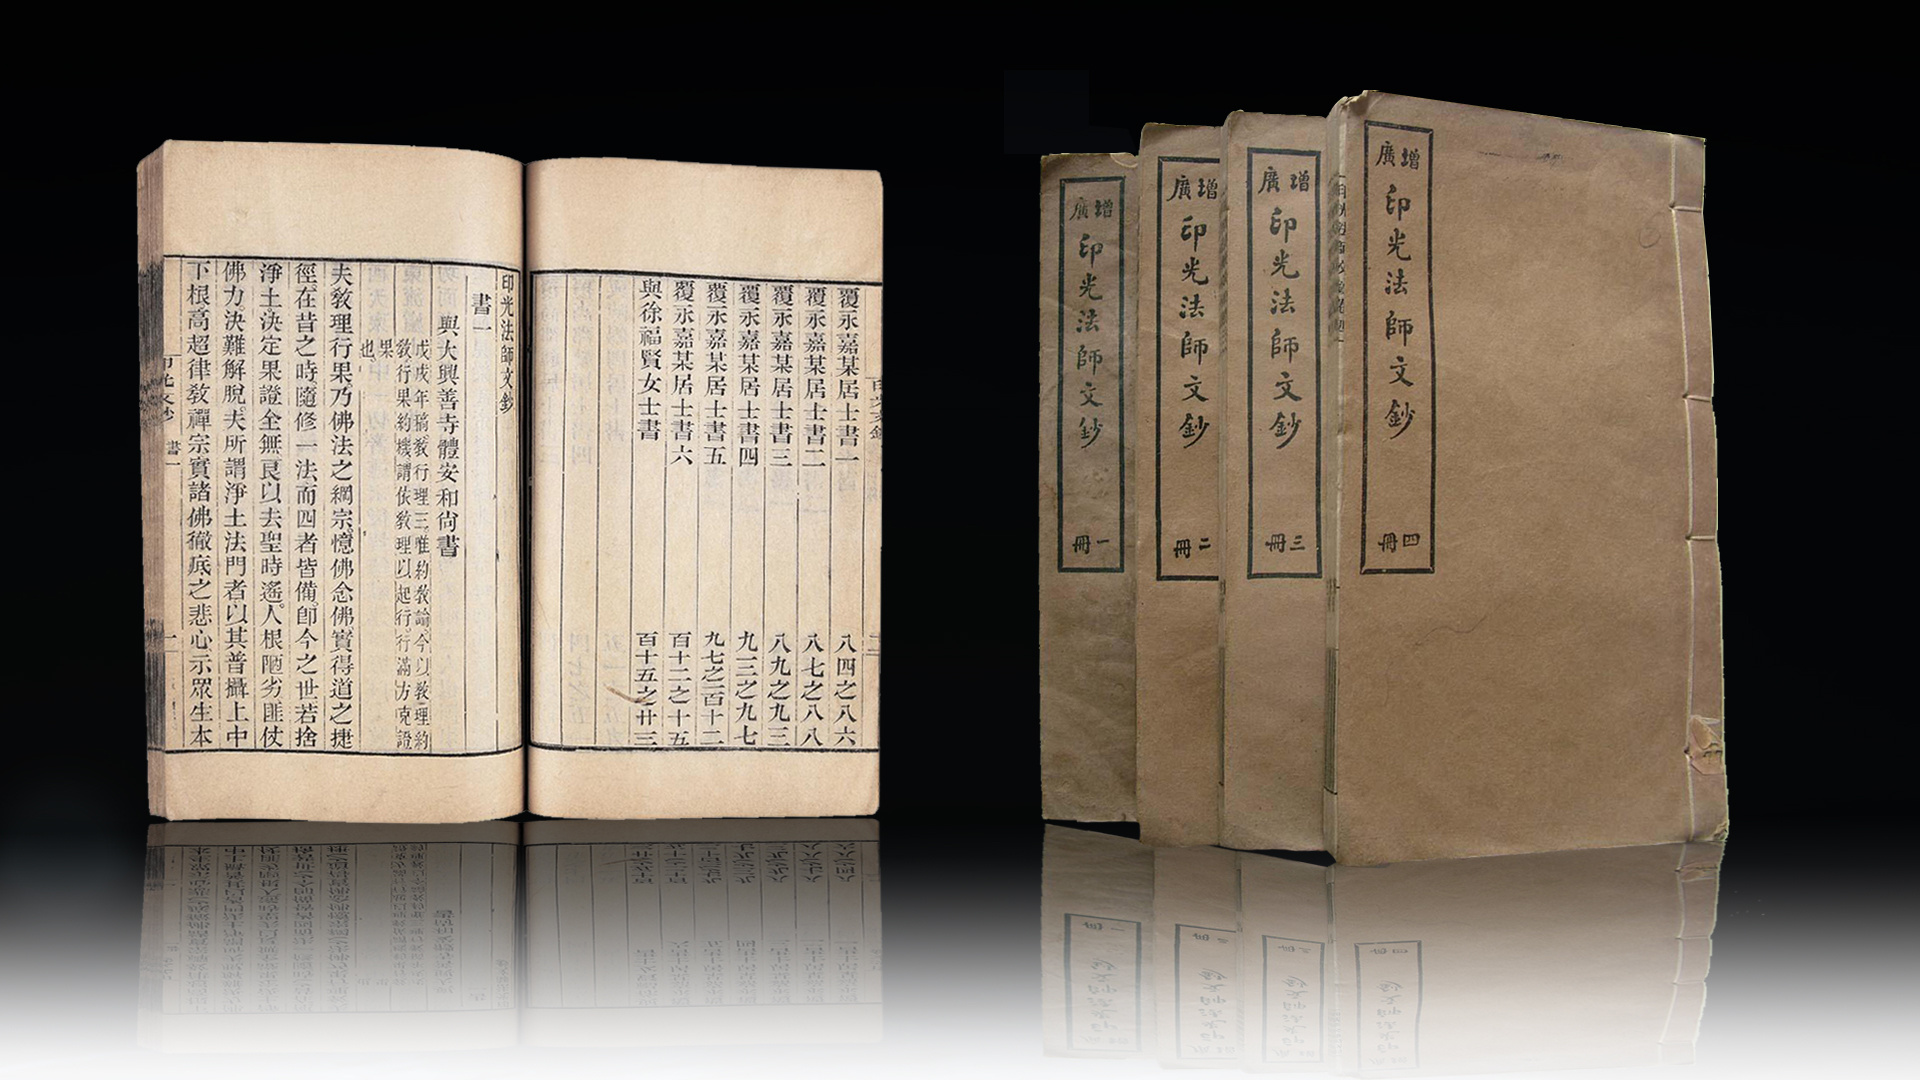 覆永嘉某居士書一 八四之八六
覆永嘉某居士書二 八七之八八
覆永嘉某居士書三 八九之九三
覆永嘉某居士書四 九三之九七
覆永嘉某居士書五 九七之一百十二
覆永嘉某居士書六 百十二之十五
與徐福賢女士書 百十五之廿三
印光法師文鈔
書一
與大興善寺體安和尚書
戊戌年稿教行理三唯約教論今以教理約
教行果約機謂依教理以起行行滿方克證
果
也
夫教理行果乃佛法之綱宗憶佛念佛實得道之捷
徑在昔之時隨修一法而四者皆備即今之世若捨
淨土決定果證全無良以去聖時遙人根陋劣匪仗
佛力決難解脫夫所謂淨土法門者以其普攝上中
下根高超律教禪宗實諸佛徹底之悲心示眾生本
印光文鈔 書一
增廣
印光法師文鈔
一冊
增廣
印光法師文鈔
二冊
增廣
印光法師文鈔
三冊
增廣
印光法師文鈔
四冊